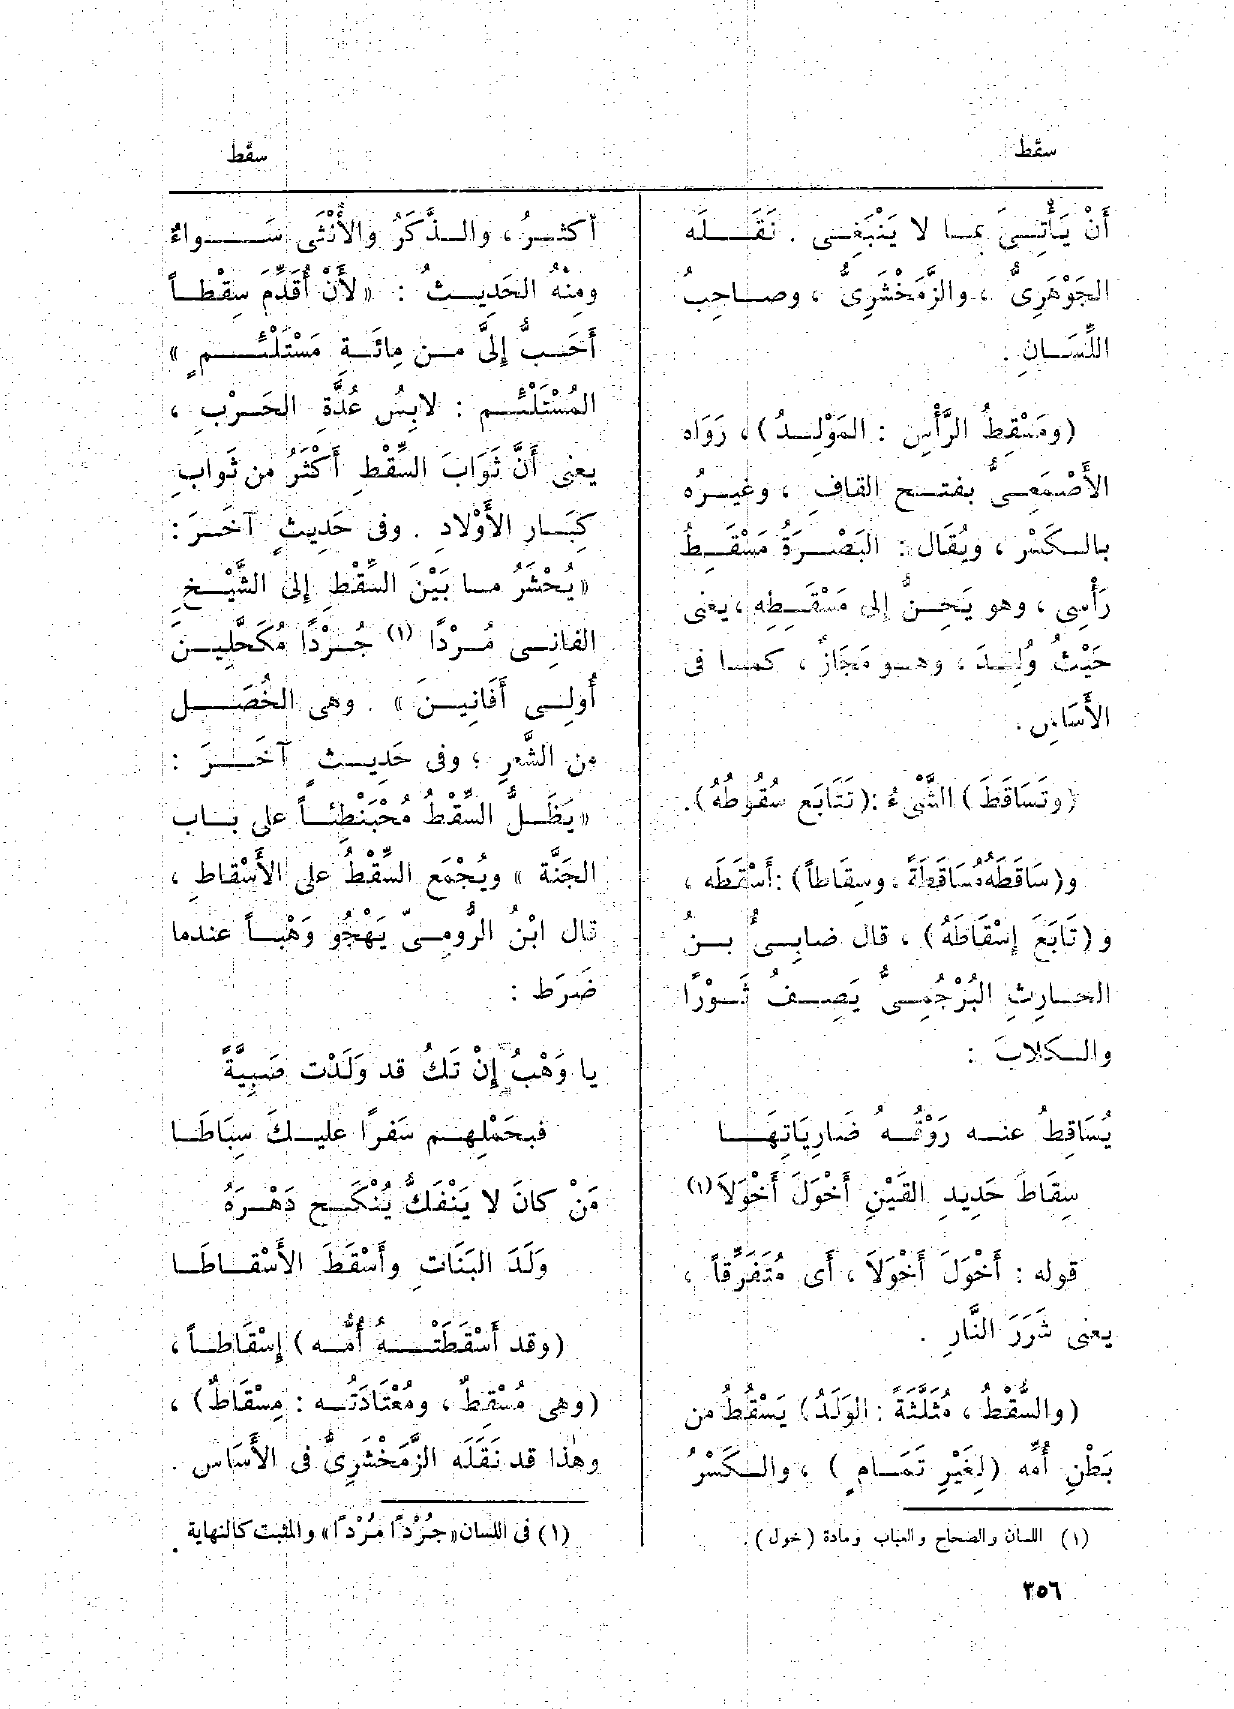 سقط
سقط
أَنْ يَأْتِىَ بما لا يَنْبَغِى . نَقَلَه
الجَوْهَرِىُّ ، والزَّمَخْشَرِىُّ ، وصاحِبُ
اللِّسَانِ .
(ومَسْقِطُ الرَّأْسِ : المَوْلِدُ) ، رَوَاه
الأَصْمَعِىُّ بفتح القافِ ، وغيرُه
بالكَسْرِ ، ويُقَال : البَصْرَةُ مَسْقَطُ
رَأْسِى ، وهو يَحِنُّ إلى مَسْقَطِه ، يعنى
حَيْثُ وُلِدَ ، وهو مَجَازٌ ، كما فى
الأَسَاسِ .
(وتَسَاقَطَ) الشَّىْءُ : (تَتَابَع سُقُوطُهُ).
و(سَاقَطَهُ مُسَاقَطَةً ، وسِقَاطاً) : أَسْقَطَه ،
و (تَابَعَ إِسْقَاطَهُ) ، قال ضابِىُّ بنُ
الحارِثِ البُرْجُمِىُّ يَصِفُ ثَوْرًا
والكلابَ :
يُسَاقِطُ عنه رَوْقُهُ ضَارِيَاتِهَا
سِقَاطَ حَدِيدِ القَيْنِ أَخْوَلَ أَخْوَلَا (١)
قوله : أَخْوَلَ أَخْوَلَا ، أَى مُتَفَرِّقاً ،
يعنى شَرَرَ النَّارِ .
(والسُّقْطُ ، مُثَلَّثَةً : الوَلَدُ) يَسْقُطُ من
بَطْنِ أُمِّه (لِغَيْرِ تَمَامٍ ) ، والكَسْرُ
أكثرُ ، والذَّكَرُ والأُنْثَى سَواءٌ
ومِنْهُ الحَدِيثُ : « لأَنْ أُقَدِّمَ سِقْطاً
أَحَبُّ إِلىَّ من مِائَةِ مُسْتَلْئِمٍ »
المُسْتَلْئِم : لابِسُ عُدَّةِ الحَرْبِ ،
يعنى أَنَّ ثَوَابَ السِّقْطِ أَكْثَرُ من ثَوابِ
كِبَارِ الأَوْلادِ . وفى حَدِيثٍ آخَرَ :
«يُحْشَرُ ما بَيْنَ السِّقْطِ إِلى الشَّيْخِ
الفانِى مُرْدًا (١) جُرْدًا مُكَحَّلِينَ
أُولِى أَفَانِينَ » . وهى الخُصَل
من الشَّعرِ ؛ وفى حَدِيثٍ آخَرَ :
«يَظَلُّ السِّقْطُ مُحْبَنْطِئاً على باب
الجَنَّة » ويُجْمَع السِّقْطُ على الأَسْقاطِ ،
قال ابْنُ الرُّومِىّ يَهْجُو وَهْباً عندما
ضَرَط :
يا وَهْبُ إِنْ تَكُ قد وَلَدْت صَبِيَّةً
فبحَمْلِهم سَفَرًا عليك سِبَاطَا
مَنْ كانَ لا يَنْفَكُّ يُنْكَح دَهْرَهُ
وَلَدَ البَنَاتِ وأَسْقَطَ الأَسْقاطَا
(وقد أَسْقَطَتْهُ أُمُّه ) إِسْقَاطاً ،
(وهى مُسْقِطٌ ، ومُعْتَادَتُه : مِسْقَاطٌ) ،
وهٰذا قد نَقَلَه الزَّمَخْشَرِىُّ فى الأَسَاس .
(١) اللسان والصحاح والعباب ومادة (خول) .
(١) فى اللسان «جُرْدًا مُرْدًا» والمثبت كالنهاية .
٢٥٦